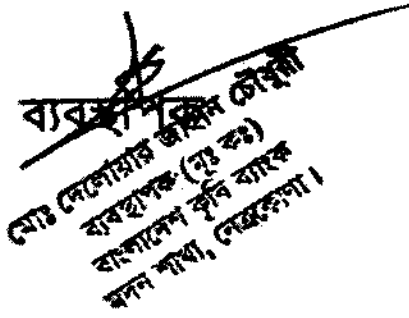 ব্যবস্থাপক
মোঃ দেলোয়ার জাহান চৌধুরী
ব্যবস্থাপক (মূঃ কঃ)
বাংলাদেশ কৃষি ব্যাংক
মদন শাখা, নেত্রকোণা।